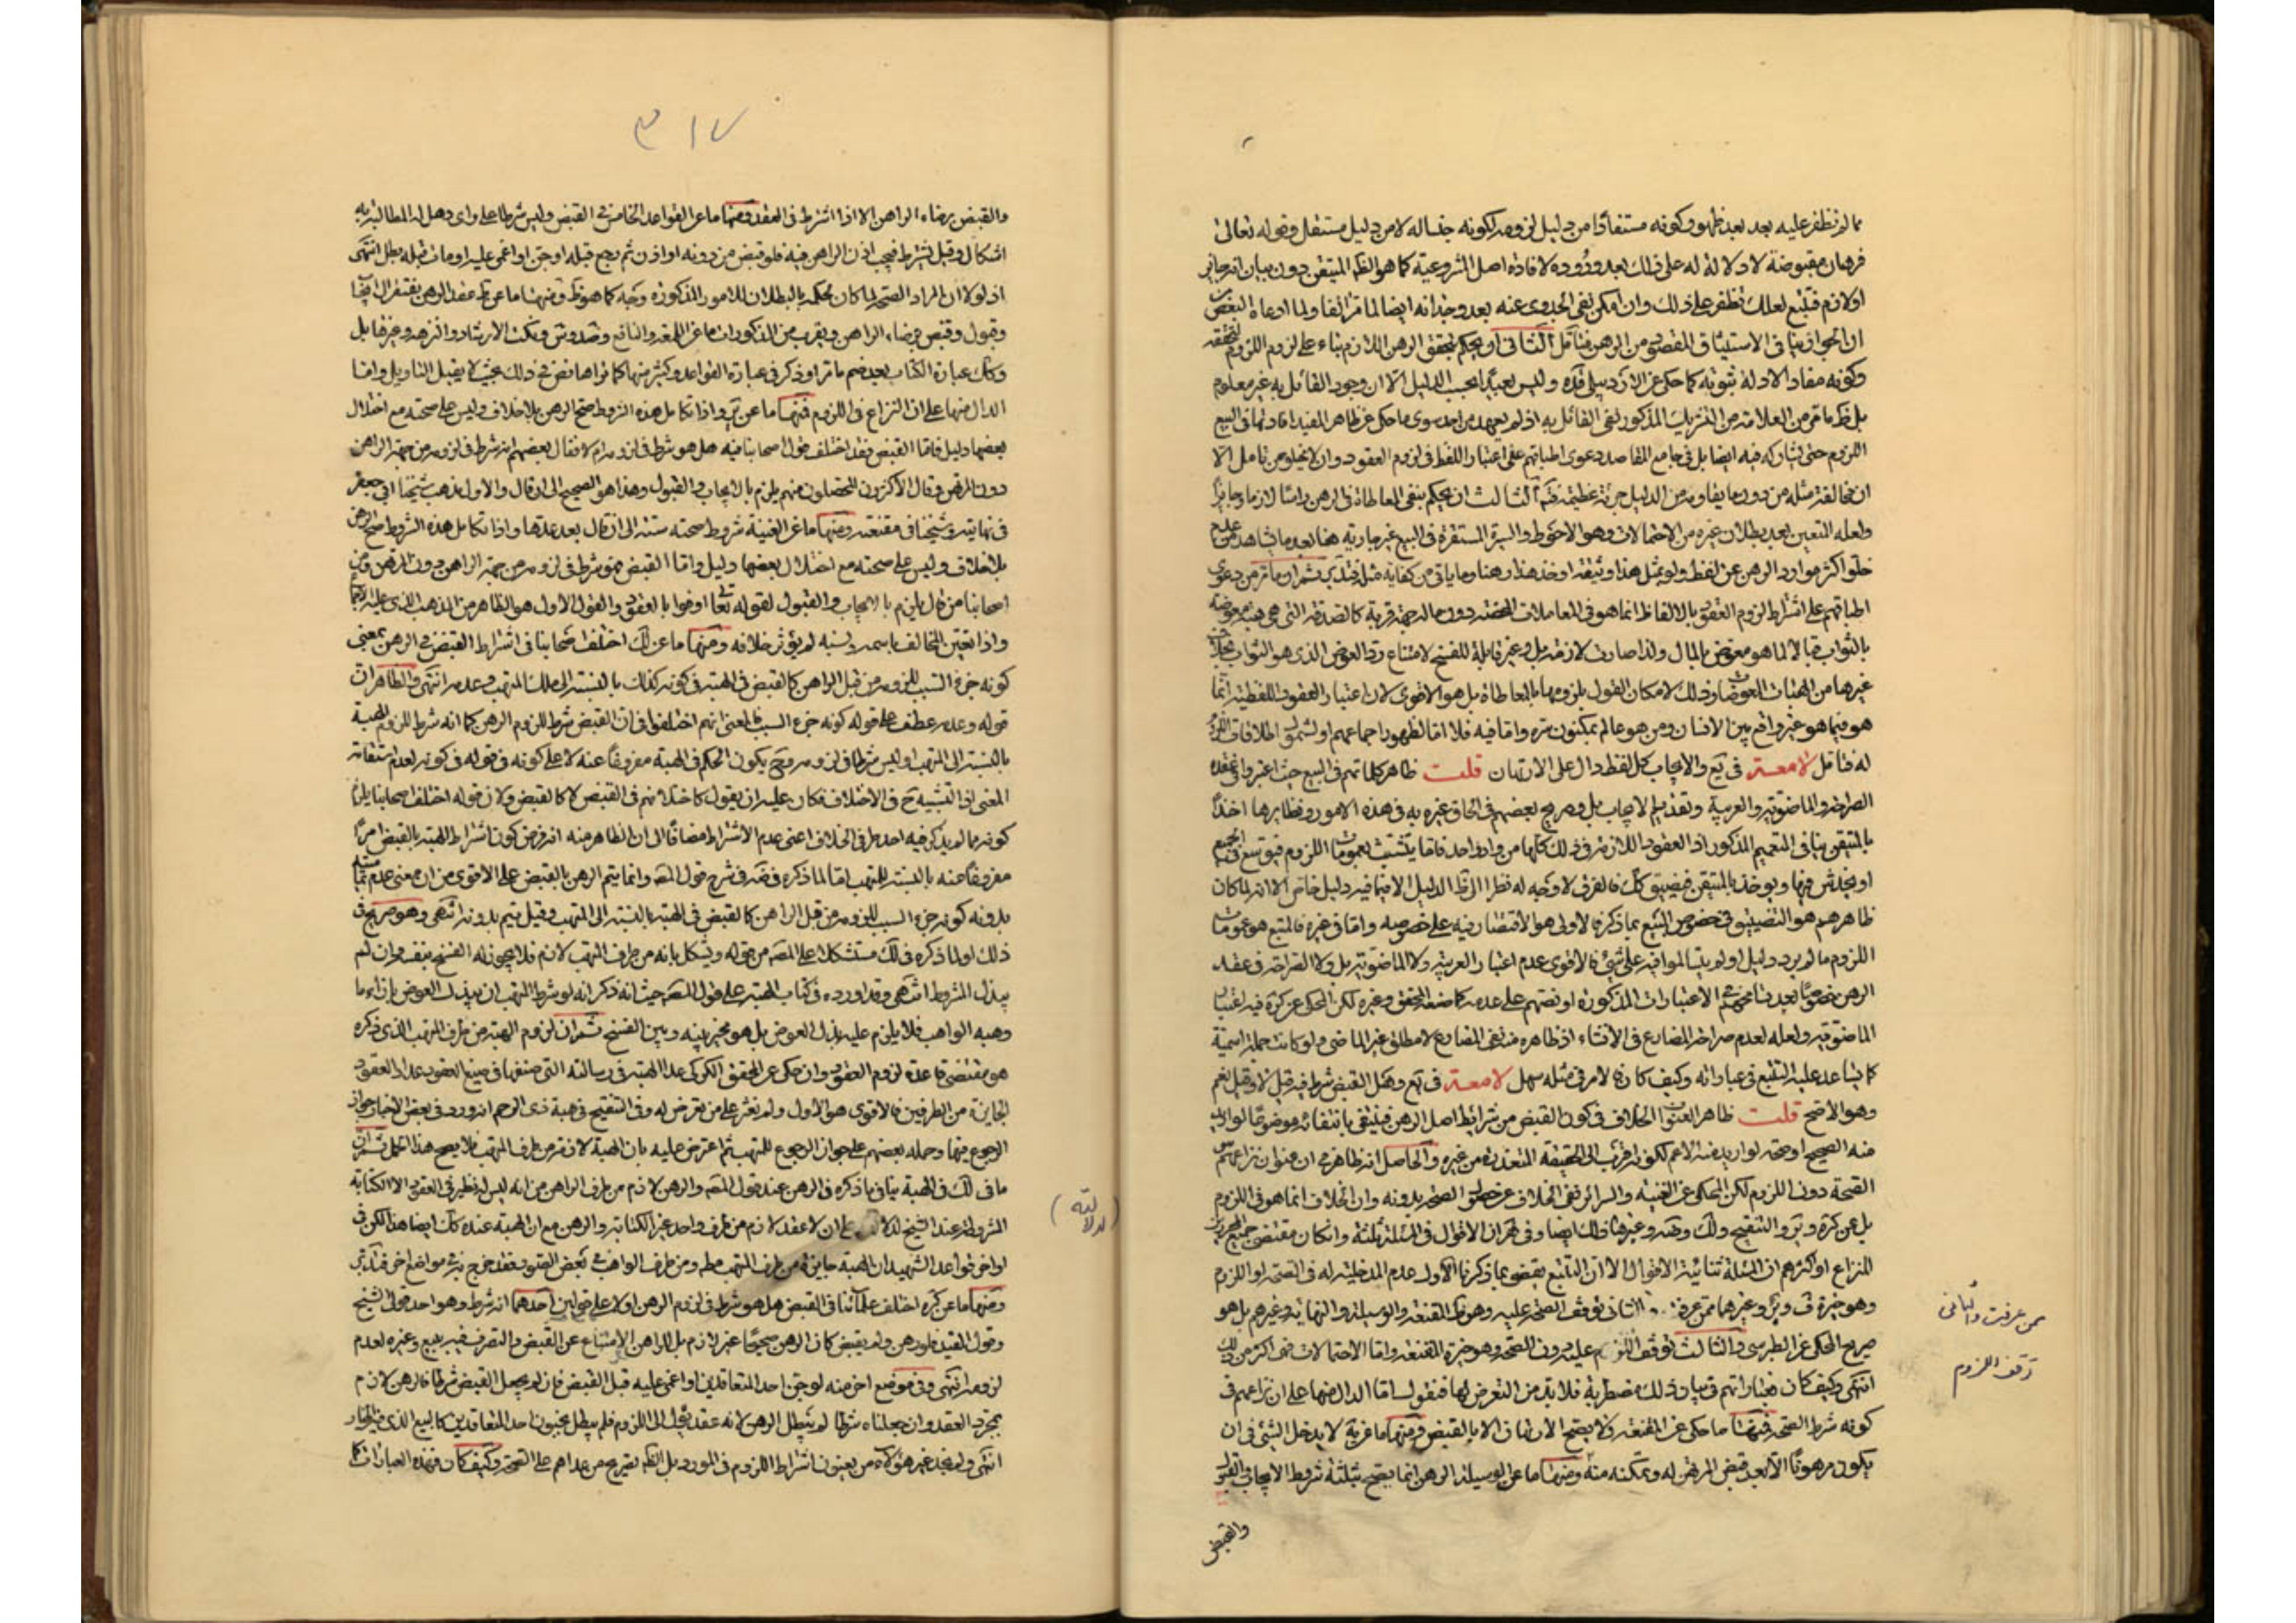 مما لم نظفر عليه بعد بعد ظهور كونه مستفادا من دليل لزومه لكونه جنسا له لا من دليل مستقل وقوله تعالى
فرهان مقبوضة لا دلالة له على ذلك بعد وروده لافادة اصل المشروعية كما هو الظم المتيقن دون بيان انه جايز
او لازم فتتبع لعلك تظفر على ذلك وان امكن نفى الجدوى عنه بعد وجدانه ايضا لما مر انفا ولما ادعاه البعض
ان الجواز ينافى الاستيثاق المقصود من الرهن فتامل الثانى ان يحكم بتحقق الرهن اللازم بناء على لزوم اللزوم لتحققه
وكونه مفاد الادلة ثبوته كما حكى عن الاردبيلى قده وليس بعيدا بحسب الدليل الا ان وجود القائل به غير معلوم
بل ظم ما مر من العلامة من التنزيل المذكور نفى القائل به اذ لم يعهد من احد سوى ما حكى عن ظاهر المفيد افادتها فى البيع
اللزوم حتى يشاركه فيه ايضا بل فى جامع المقاصد دعوى اطباقهم على اعتبار اللفظ فى لزوم العقود وان لا يخلو من تامل الا
ان مخالفة مثله من دون ما يقاومه من الدليل جرئة عظيمة فتم الثالث ان يحكم بنفى المعاطاة فى الرهن راسا لازما وجايزا
ولعله المتعين بعد بطلان غيره من الاحتمالات وهو الاحوط والسيرة المستقرة فى البيع غير جارية هنا بعد ما يشاهد من عدم
خلو اكثر موارد الرهن عن لفظ ولو بمثل هذا وثيقة او خذ هذا رهنا وما ياتى من كفاية مثله
اطباقهم على اشتراط لزوم العقود بالالفاظ انما هو فى المعاملات المحضة دون ماله جهة قربة كالصدقة التى هى هبة معوضة
بالثواب قبالا لما هو معوض بالمال ولذا صارت لازمة بل وغير قابلة للفسخ لامتناع رد العوض الذى هو الثواب بخلاف
غيرها من الهبات المعوضة وذلك لامكان القول بلزومها بالمعاطاة بل هو الاقوى لان اعتبار العقود اللفظية انما
هو فيما هو غير واقع بين الانسان ومن هو عالم بمكنون سره واما فيه فلا اما لظهور اجماعهم او لشمول اطلاقات اللزوم
له فتامل لامعة فى يع والايجاب كل لفظ دال على الارتهان قلت ظاهر كلماتهم فى البيع حيث اعتبروا فى عقده
الصراحة والماضوية والعربية وتقديم الايجاب بل وصريح بعضهم فى الحاق غيره به فى هذه الامور ونظايرها اخذا
بالمتيقن ينافى التعميم المذكور اذ العقود اللازمة فى ذلك كلها من واد واحد فاما يتشبث بعمومات اللزوم فيوسع فى الجميع
او يخدش فيها ويوخذ بالمتيقن فيضيق كك فالفرق لا وجه له نظرا الى ظم الدليل الا فيما فيه دليل خاص الا انه لما كان
ظاهرهم هو التضييق فى خصوص البيع بما ذكر فالاولى هو الاقتصار فيه على خصوصه واما فى غيره فالمتبع هو عمومات
اللزوم ما لم يرد دليل او لم يتسالموا فيه على شئ فالاقوى عدم اعتبار العربية ولا الماضوية بل ولا الصراحة فى عقد
الرهن خصوصا بعد تسامحهم فى الاعتبارات المذكورة او نصهم على عدمه كما صنعه المحقق وغيره لكن المحكى عن كره فيه اعتبار
الماضوية ولعله لعدم صراحة المضارع فى الانشاء اذ ظاهره منه نفى المضارع لا مطلق غير الماضى ولو كانت جملة اسمية
كما يساعد عليه التتبع فى عباراته وكيف كان فالامر فى مثله سهل لامعة فى يع وهل القبض شرط فيه قيل لا وقيل نعم
وهو الاصح قلت ظاهر العنوان الخلاف فى كون القبض من شرايط اصل الرهن فينتفى بانتفائه موضوعا لو اريد
منه الصحيح او صحة لو اريد منه الاعم لكونه اقرب الى الحقيقة المتعذرة من غيره والحاصل انه ظاهر فى ان عنوان نزاعهم
الصحة دون اللزوم لكن المحكى عن الغنية والسرائر نفى الخلاف عن حصول الصحة بدونه وان الخلاف انما هو فى اللزوم
بل عن كره وير والتنقيح ولك وضه وغيرها ذلك ايضا وفى ظم ان الاقوال فى المسئلة ثلثة وان كان مقتضى جميع تحرير
النزاع او اكثرهم ان المسئلة ثنائية الاقوال الا ان التتبع يقضى بما ذكرنا الاول عدم المدخلية له فى الصحة او اللزوم
وهو خيرة ف وير وغيرهما ممن عرفت الثانى توقف الصحة عليه وهو ظم المقنعة والوسيلة والنهاية وغيرهم بل هو
صريح المحكى عن الطبرسى والثالث توقف اللزوم عليه دون الصحة وهو خيرة المقنعة واما الاحتمالات فهى اكثر من ذلك
انتهى وكيف كان فعباراتهم فى بيان ذلك مضطربة فلا بد من التعرض لها فنقول اما الدال منها على ان نزاعهم فى
كونه شرط الصحة فمنها ما حكى عن المقنعة ولا يصح الارتهان الا بالقبض ومنها ما عن يه لا يدخل الشئ فى ان
يكون مرهونا الا بعد قبض المرتهن له وتمكنه منه ومنها ما عن الوسيلة الرهن انما يصح بثلثة شروط الايجاب والقبول
والقبض
ممن عرفت والثانى
توقف اللزوم
٣١٧
والقبض برضاء الراهن الا اذا اشترط فى العقد ومنها ما عن القواعد الخامس فى القبض وليس شرطا على راى وهل له المطالبة به
اشكال وقيل يشترط فيجب اذن الراهن فيه فلو قبض من دونه او اذن ثم رجع قبله او جن او اغمى عليه او مات قبله بطل انتهى
اذ لولا ان المراد الصحة لما كان لحكمه بالبطلان للامور المذكورة وجه كما هو ظم ومنها ما عن ئط عقد الرهن يفتقر الى ايجاب
وقبول وقبض برضاء الراهن ويقرب من المذكورات ما عن اللمعة والنافع وضه وس ونكت الارشاد والنزهة وغيرها بل
وكك عبارة الكتاب بعد ضم ما مر او ذكر فى عبارة القواعد وكثير منها كما تراها نص فى ذلك بحيث لا يقبل التاويل واما
الدال منها على ان النزاع فى اللزوم فمنها ما عن ئر واذا تكامل هذه الشروط صح الرهن بلا خلاف وليس على صحته مع اختلال
بعضها دليل فاما القبض فقد اختلف قول اصحابنا فيه هل هو شرط فى لزومه ام لا فقال بعضهم انه شرط فى لزومه من جهة الراهن
دون المرتهن وقال الاكثرون المحصلون منهم يلزم بالايجاب والقبول وهذا هو الصحيح الى ان قال والاول مذهب شيخنا ابى جعفر
فى نهايته وشيخنا فى مقنعته ومنها ما عن الغنية شروط صحته ستة الى ان قال بعد عدها واذا تكامل هذه الشروط صح الرهن
بلا خلاف وليس على صحته مع اختلال بعضها دليل واما القبض فهو شرط فى لزومه من جهة الراهن دون المرتهن ومن
اصحابنا من قال يلزم بالايجاب والقبول لقوله تعا اوفوا بالعقود والقول الاول هو الظاهر من المذهب الذى عليه الاجماع
واذا تعين المخالف باسمه ونسبه لم يؤثر خلافه ومنها ما عن لك اختلف اصحابنا فى اشتراط القبض فى الرهن بمعنى
كونه جزء السبب للزومه من قبل الراهن كالقبض فى الهبة فى كونه كذلك بالنسبة الى ملك المتهب وعدمه انتهى والظاهر ان
قوله وعدمه عطف على قوله كونه جزء السبب فالمعنى انهم اختلفوا فى ان القبض شرط للزوم الرهن كما انه شرط للزوم الهبة
بالنسبة الى المتهب او ليس شرطا فى لزومه وح يكون الحكم فى الهبة مفروغا عنه لا على كونه فى قوله فى كونه لعدم استقامة
المعنى اذ التشبيه ح فى الاختلاف فكان عليه ان يقول كاختلافهم فى القبض لا كالقبض ولان قوله اختلف اصحابنا يلزم
كونه مما لم يذكر فيه احد طرفى الخلاف اعنى عدم الاشتراط مضافا الى ان الظاهر منه انه فرض كون اشتراط الهبة بالقبض امرا
مفروغا عنه بالنسبة للمتهب اما لما ذكره فى ضه فى شرح قول المصه وانما يتم الرهن بالقبض على الاقوى من ان معنى عدم تماميته
بدونه كونه جزء السبب للزومه من قبل الراهن كالقبض فى الهبة بالنسبة الى المتهب وقيل يتم بدونه انتهى وهو صريح فى
ذلك او لما ذكره فى لك مستشكلا على المصه من قوله ويشكل بانه من طرف المتهب لازم فلا يجوز له الفسخ بنفسه وان لم
يبذل المشروط انتهى وقد اورده فى كتاب الهبة على قول المصه حيث انه ذكر انه لو شرط المتهب ان يبذل العوض بازاء ما
وهبه الواهب فلا يلزم عليه بذل العوض بل هو مخير بينه وبين الفسخ ثم ان لزوم الهبة من طرف المتهب الذى ذكره
هو مقتضى قاعدة لزوم العقود وان حكى عن المحقق الكركى عد الهبة فى رسالته التى صنفها فى صيغ العقود عداد العقود
الجايزة من الطرفين فالاقوى هو الاول ولم نعثر على من تعرض له وفى التنقيح فى هبة ذى الرحم انه ورد فى بعض الاخبار جواز
الرجوع فيها وحمله بعضهم على جواز الرجوع للمتهب ثم اعترض عليه بان الهبة لازمة من طرف المتهب فلا يصح هذا الحمل ثم ان
ما فى لك فى الهبة ينافى ما ذكره فى الرهن عند قول المصه والرهن لازم من طرف الراهن من انه ليس له نظير فى العقود الا الكتابة
المشروطة عند الشيخ على ان لا عقد لازم من طرف واحد غير الكتابة والرهن مع ان الهبة عنده كك ايضا هذا لكن فى
اواخر قواعد الشهيد ان الهبة جايزة من طرف المتهب مطه ومن طرف الواهب فى بعض الصور
ومنها ما عن كره اختلف علمائنا فى القبض هل هو شرط فى لزوم الرهن اولا على قولين احدهما انه شرط وهو احد قولى الشيخ
وقول المفيد فلو رهن ولم يقبض كان الرهن صحيحا غير لازم بل للراهن الامتناع عن القبض والتصرف فيه ببيع وغيره لعدم
لزومه انتهى وفى موضع اخر منه لو جن احد المتعاقدين او اغمى عليه قبل القبض فان لم يجعل القبض شرطا فالرهن لازم
بمجرد العقد وان جعلناه شرطا لم يبطل الرهن لانه عقد يؤل الى اللزوم فلم يبطل بجنون احد المتعاقدين كالبيع الذى فيه الخيار
انتهى ولم نجد غير هؤلاء من يعنون اشتراط اللزوم فى المورد بل الظم تصريح من عداهم على الصحة وكيف كان فهذه العبارات كما
(لدلالته)